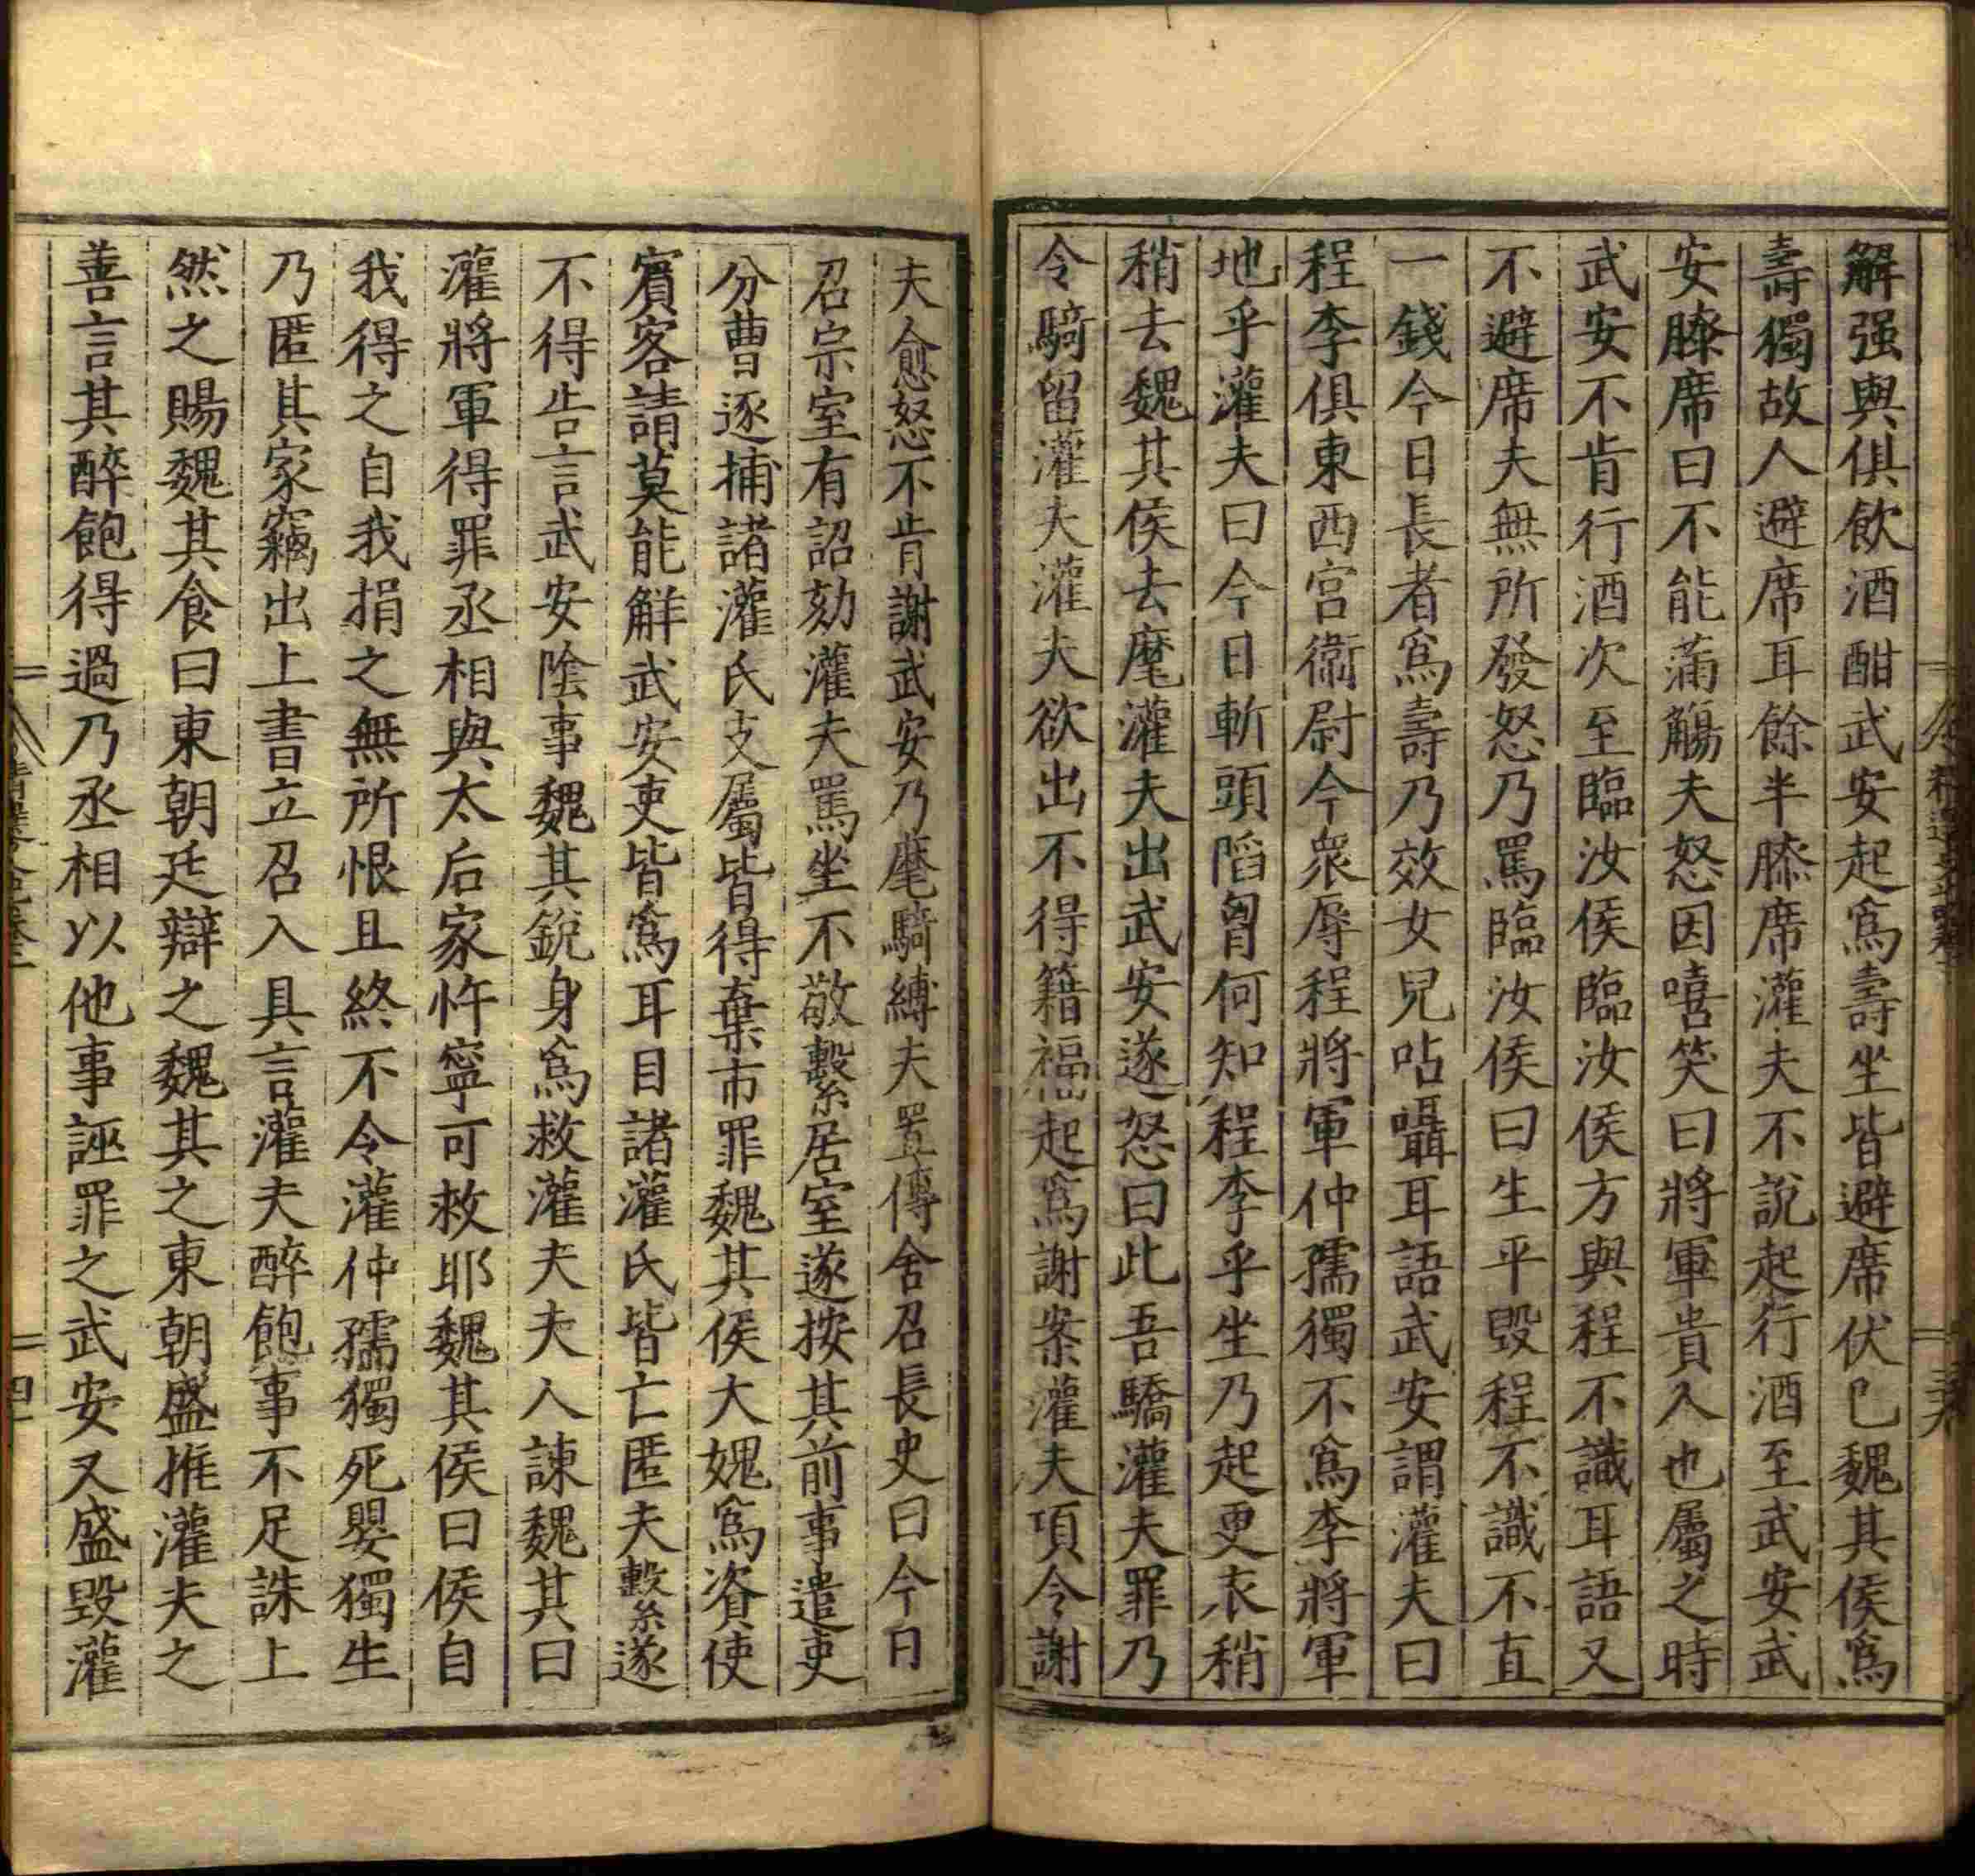 解强與俱飲酒酣武安起爲壽坐皆避席伏巳魏其侯爲
壽獨故人避席耳餘半膝席灌夫不説起行酒至武安武
安膝席曰不能滿觴夫怒因嘻笑曰將軍貴人也屬之時
武安不肯行酒次至臨汝侯臨汝侯方與程不識耳語又
不避席夫無所發怒乃罵臨汝侯曰生平毀程不識不直
一錢今日長者爲壽乃效女兒呫囁耳語武安謂灌夫曰
程李俱東西宮衛尉今衆辱程將軍仲孺獨不爲李將軍
地乎灌夫曰今日斬頭䧟胷何知程李乎坐乃起更衣稍
稍去魏其侯去麾灌夫出武安遂怒曰此吾驕灌夫罪乃
令騎留灌夫灌夫欲出不得籍福起爲謝案灌夫項令謝
夫愈怒不肯謝武安乃麾騎縛夫置傳舍召長史曰今日
召宗室有詔劾灌夫罵坐不敬繫居室遂按其前事遣吏
分曹逐捕諸灌氏支屬皆得棄市罪魏其侯大媿爲資使
賓客請莫能解武安吏皆爲耳目諸灌氏皆亡匿夫繫遂
不得告言武安陰事魏其銳身爲救灌夫夫人諫魏其曰
灌將軍得罪丞相與太后家忤寧可救耶魏其侯曰侯自
我得之自我捐之無所恨且終不令灌仲孺獨死嬰獨生
乃匿其家竊出上書立召入具言灌夫醉飽事不足誅上
然之賜魏其食曰東朝廷辯之魏其之東朝盛推灌夫之
善言其醉飽得過乃丞相以他事誣罪之武安又盛毀灌